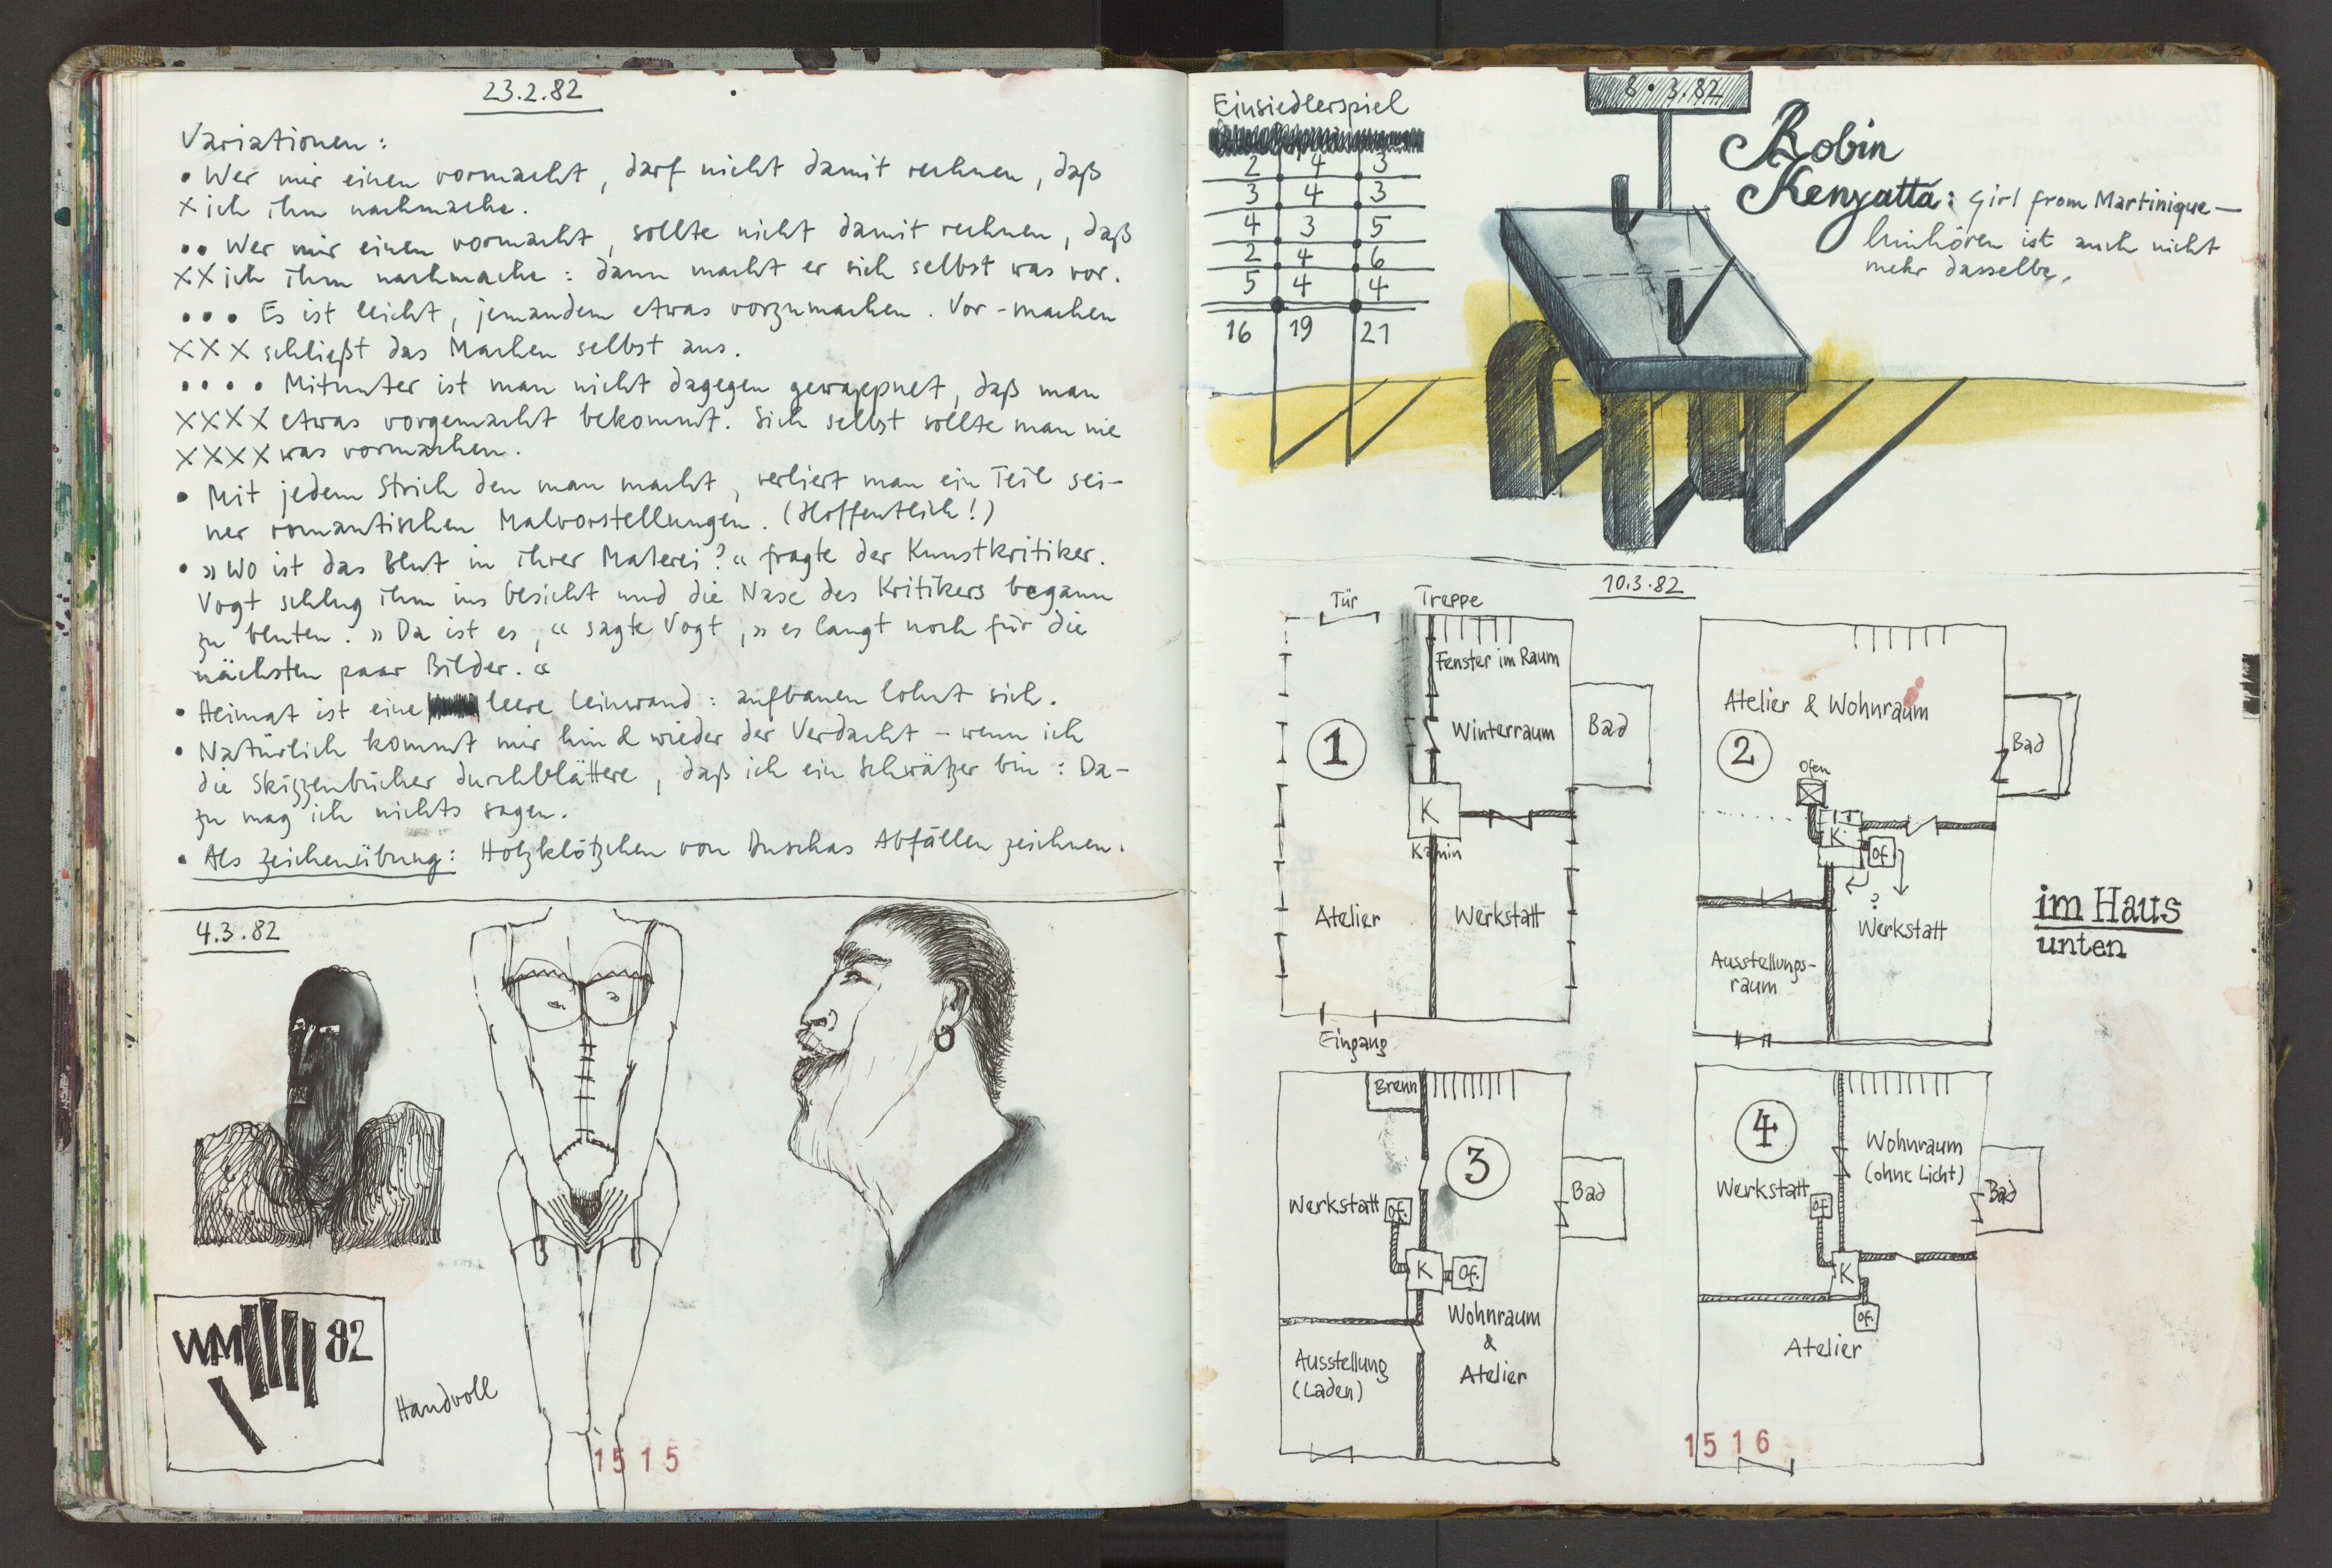 23.2.82
Variationen:
• Wer mir einen vormacht, darf nicht damit rechnen, daß
x ich ihm nachmache.
•• Wer mir einen vormacht, sollte nicht damit rechnen, daß
xx ich ihm nachmache: dann macht er sich selbst was vor.
••• Es ist leicht, jemandem etwas vorzumachen. Vor-machen
xxx schließt das Machen selbst aus.
•••• Mitunter ist man nicht dagegen gewappnet, daß man
xxxx etwas vorgemacht bekommt. Sich selbst sollte man nie
xxxx was vormachen.
• Mit jedem Strich den man macht, verliert man ein Teil sei-
ner romantischen Malvorstellungen. (Hoffentlich!)
• »Wo ist das Blut in ihrer Malerei?« fragte der Kunstkritiker.
Vogt schlug ihm ins Gesicht und die Nase des Kritikers begann
zu bluten. »Da ist es,« sagte Vogt, »es langt noch für die
nächsten paar Bilder.«
• Heimat ist eine leere Leinwand: aufbauen lohnt sich.
• Natürlich kommt mir hin & wieder der Verdacht – wenn ich
die Skizzenbücher durchblättere, daß ich ein Schwätzer bin: Da-
zu mag ich nichts sagen.
• Als Zeichenübung: Holzklötzchen von Duschas Abfällen zeichnen.
4.3.82
WM 82
Handvoll
1515
Einsiedlerspiel
2 4 3
3 4 3
4 3 5
2 4 6
5 4 4
16 19 21
8.3.82
Robin
Kenyatta: Girl from Martinique –
hinhören ist auch nicht
mehr dasselbe.
10.3.82
Tür
Treppe
Fenster im Raum
1
Winterraum
Bad
K
Kamin
Atelier
Werkstatt
Eingang
Atelier & Wohnraum
2
Bad
Ofen
K.
Of.
?
Werkstatt
Ausstellungs-
raum
im Haus
unten
Brenn
3
Werkstatt
Of.
Bad
K
Of.
Wohnraum
&
Atelier
Ausstellung
(Laden)
4
Wohnraum
(ohne Licht)
Werkstatt
Of
Bad
K
Of.
Atelier
1516